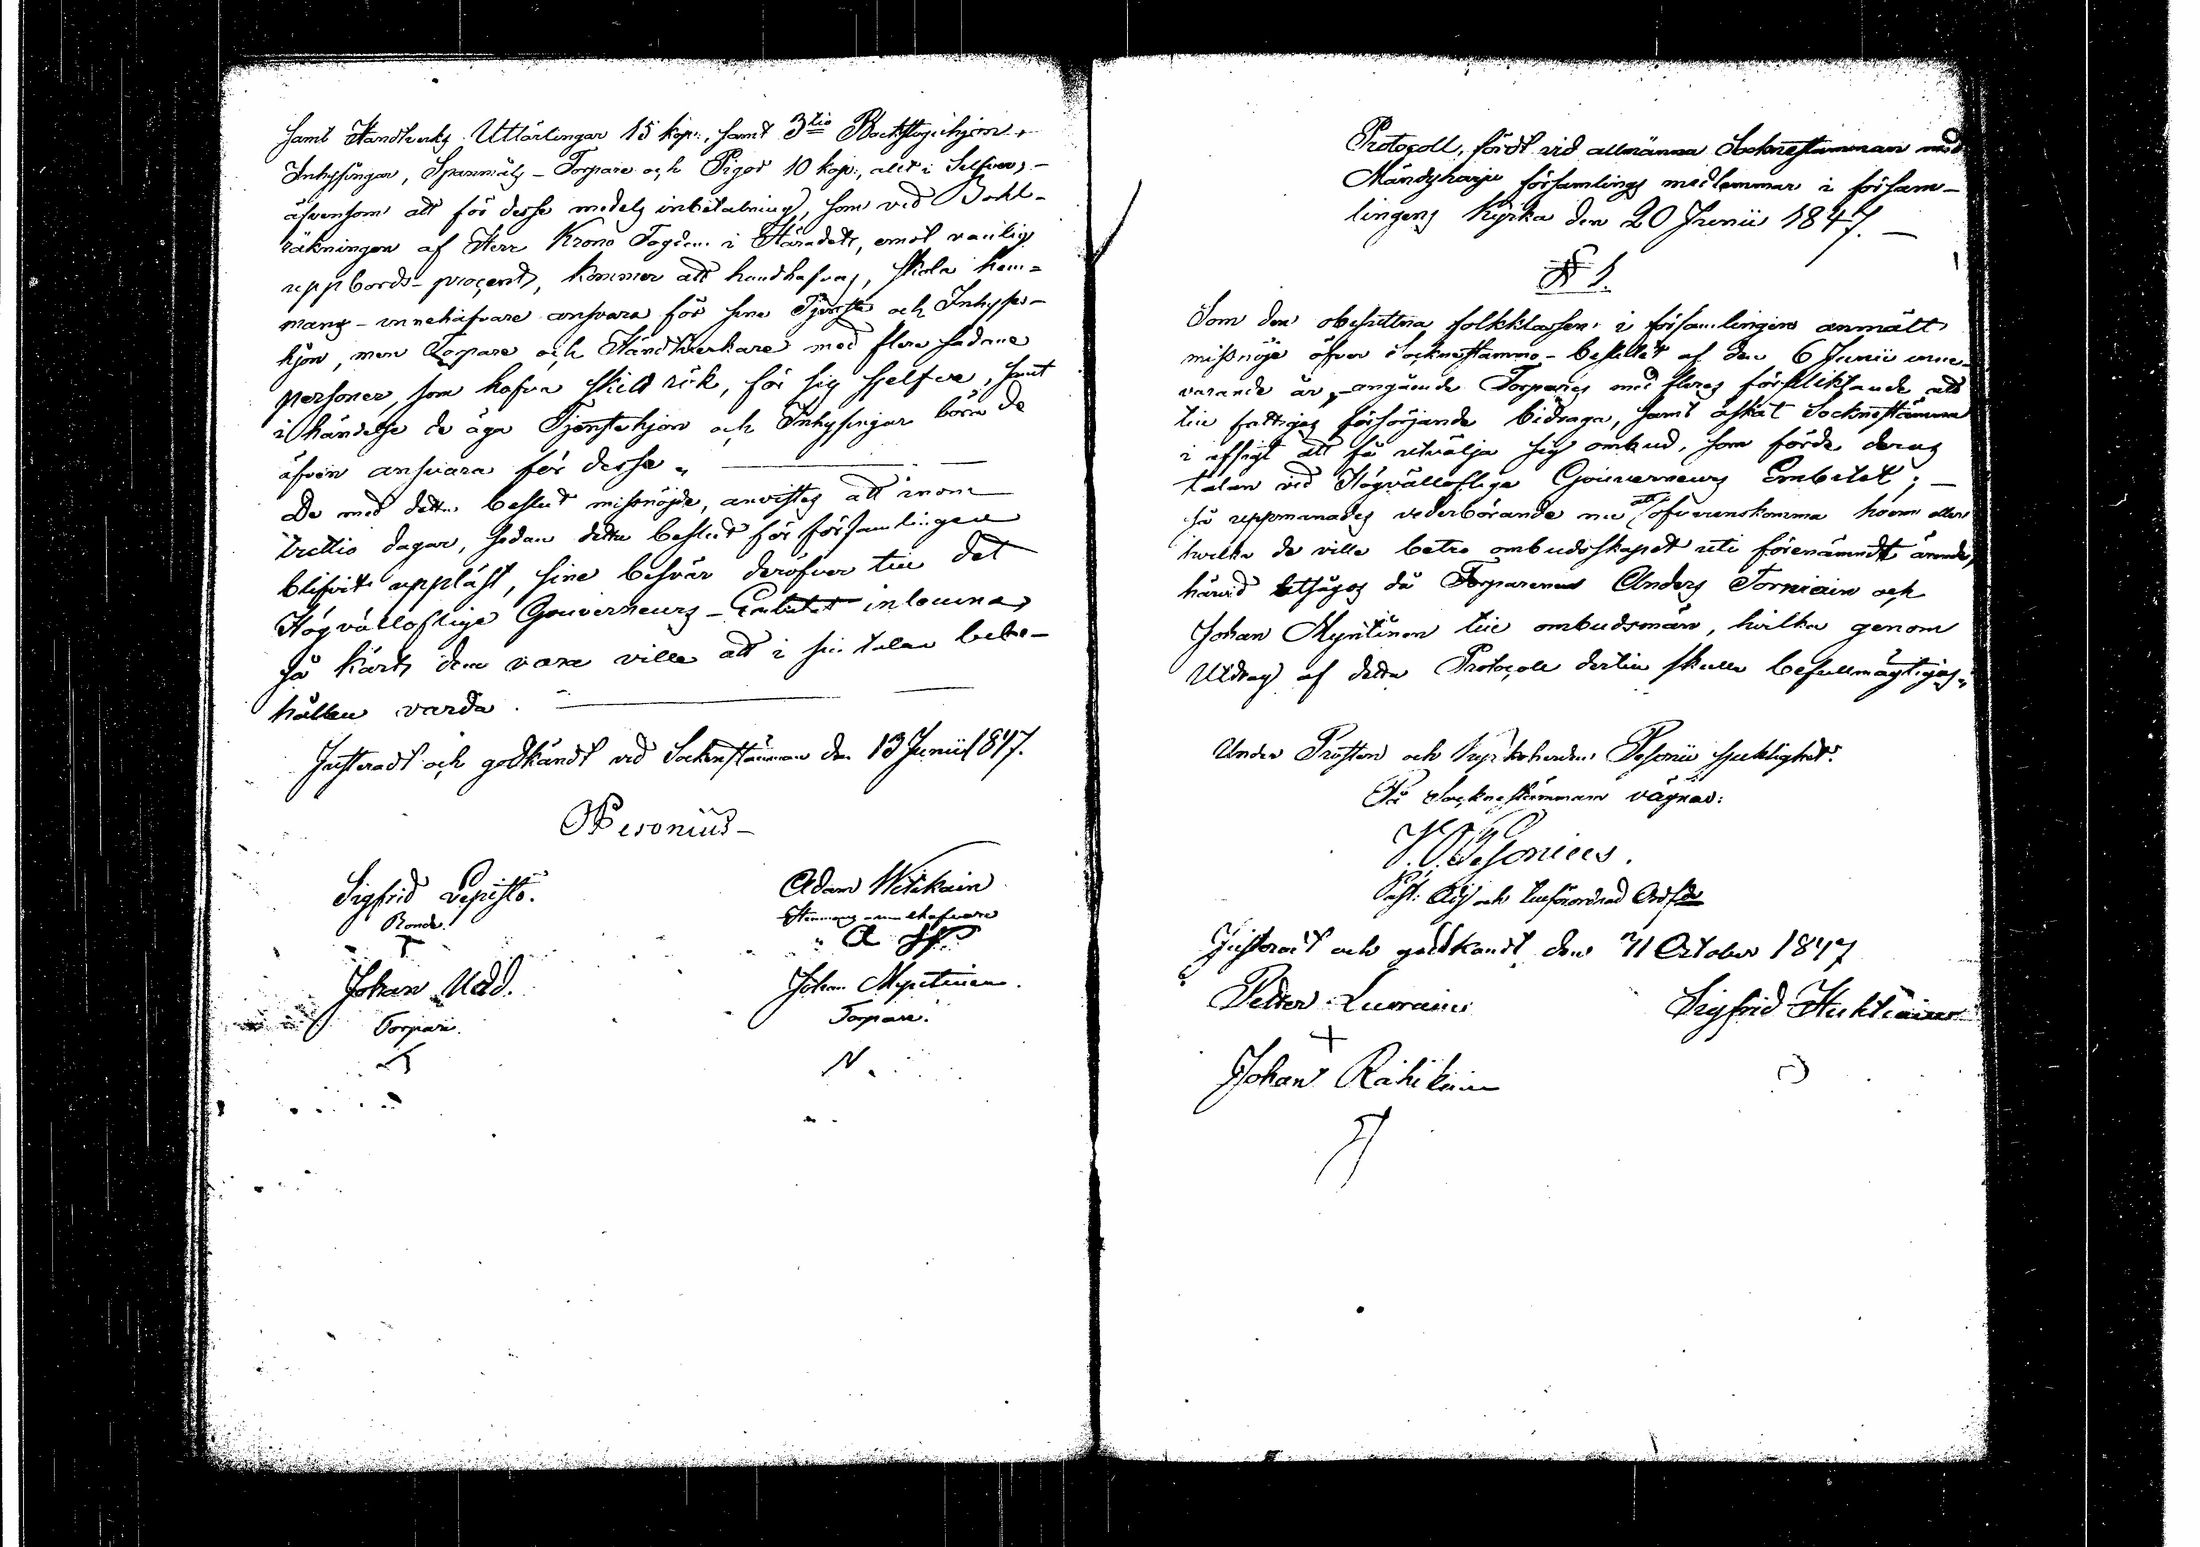 samt Handtverks Utlärlingar 15 kop:, samt 3tio Backstuguhjon,
Inhysingar, Spanmåls-Torpare och Pigor 10 kop:, allt i Silfver, -
äfvensom att för desse medels inbetalning, som vid Bokl-
räkningen af Herr Krono Fogden i Häradet, emot vanlig
uppbörds-procent, kommer att handhafvas, skola hem-
mans-innehafvare ansvara för sine Tjenste och Inhyses-
hjon, men Torpare och Handtverkare med flere sådane
personer, som hafva skild rök, för sig sjelfve, samt
i händelse de äga Tjenstehjon och Inhysingar böra de
äfven ansvara för desse. ———
De med detta beslut missnöjde, anvistes att inom
trettio dagar, sedan detta beslut för församlingen
blifvit uppläst, sine besvär deröfver till det
Högvälloflige Gouverneurs-Embetet inlemna,
så kärt dem vara ville att i sin talan bibe-
hållen varda. ———
Justeradt och godkändt vid Sockenstämman den 13 Junii 1847.
Pesonius-
Sigfrid Lepistö.
Bonde.
Adam Wirikain
Hemmans-innehafvare
Johan Udd.
Torpare.
Johan Myntinen.
Torpare.
N.
Protocoll, fördt vid allmänna Socknestämman med
Mändyharju församlings medlemmar i försam-
lingens Kyrka den 20 Junii 1847. —
§ 1.
Som den obesuttna folkklassen i församlingen anmält
missnöje öfver Socknestämmo-beslutet af den 6 Junii inne-
varande år, angående Torpares med fleres förpliktande att
till fattiges försörjande bidraga, samt äskat Socknestämma
i afsigt att få utvälja sig ombud, som förde deras
talan vid Högvälloflige Gouverneurs Embetet; —
så uppmanades vederbörande nu att öfverenskomma hvem eller
hvilka de ville betro ombudsskapet uti förenämndt ärende,
härvid utsågos då Torparena Anders Torniain och
Johan Myntinen till ombudsmän, hvilka genom
Utdrag af detta Protocoll dertill skulle befullmägtigas.
Under Prosten och Kyrkoherden Pesonii sjuklighet:
På Socknestämmans vägnar:
Pesonius.
Past: Adj och tillförordnad Ordf:de
Justerat och godkändt den 31 October 1847
Petter Lumiain
Sigfrid Huktiainen
Johan Rähikäin